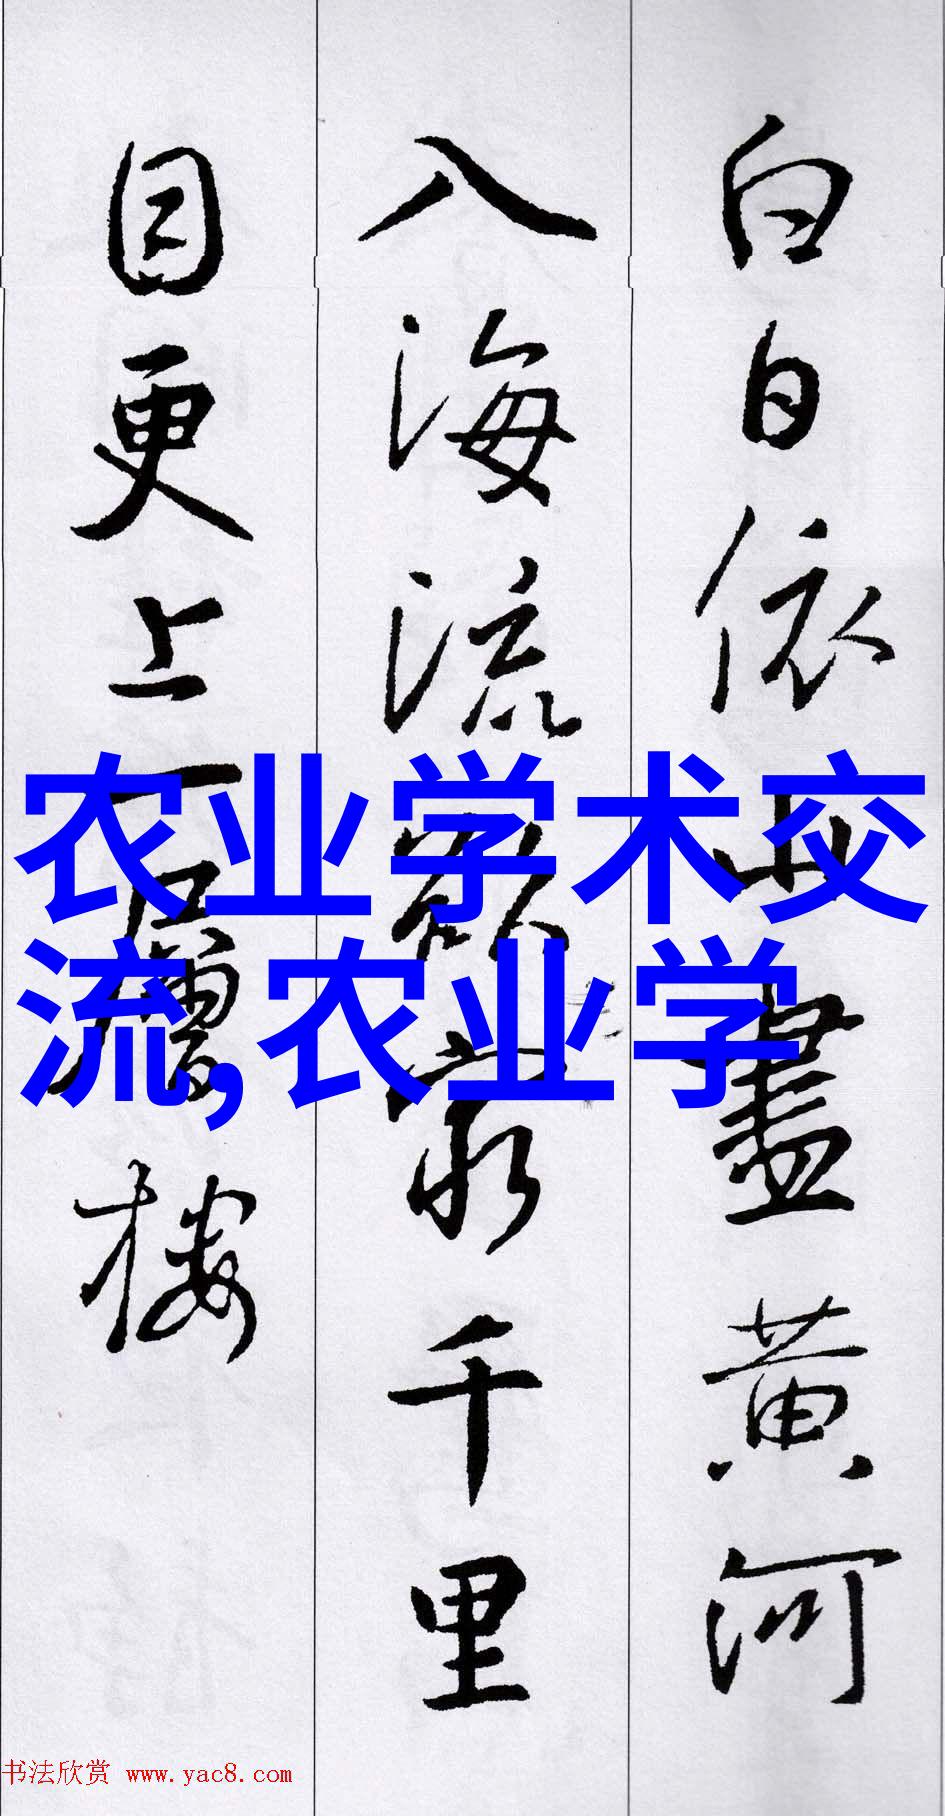 白日依山盡黄河
入海流欲窮千里
目更上一層樓
农业学术交
流,农业学
书法欣赏 www.yac8.com